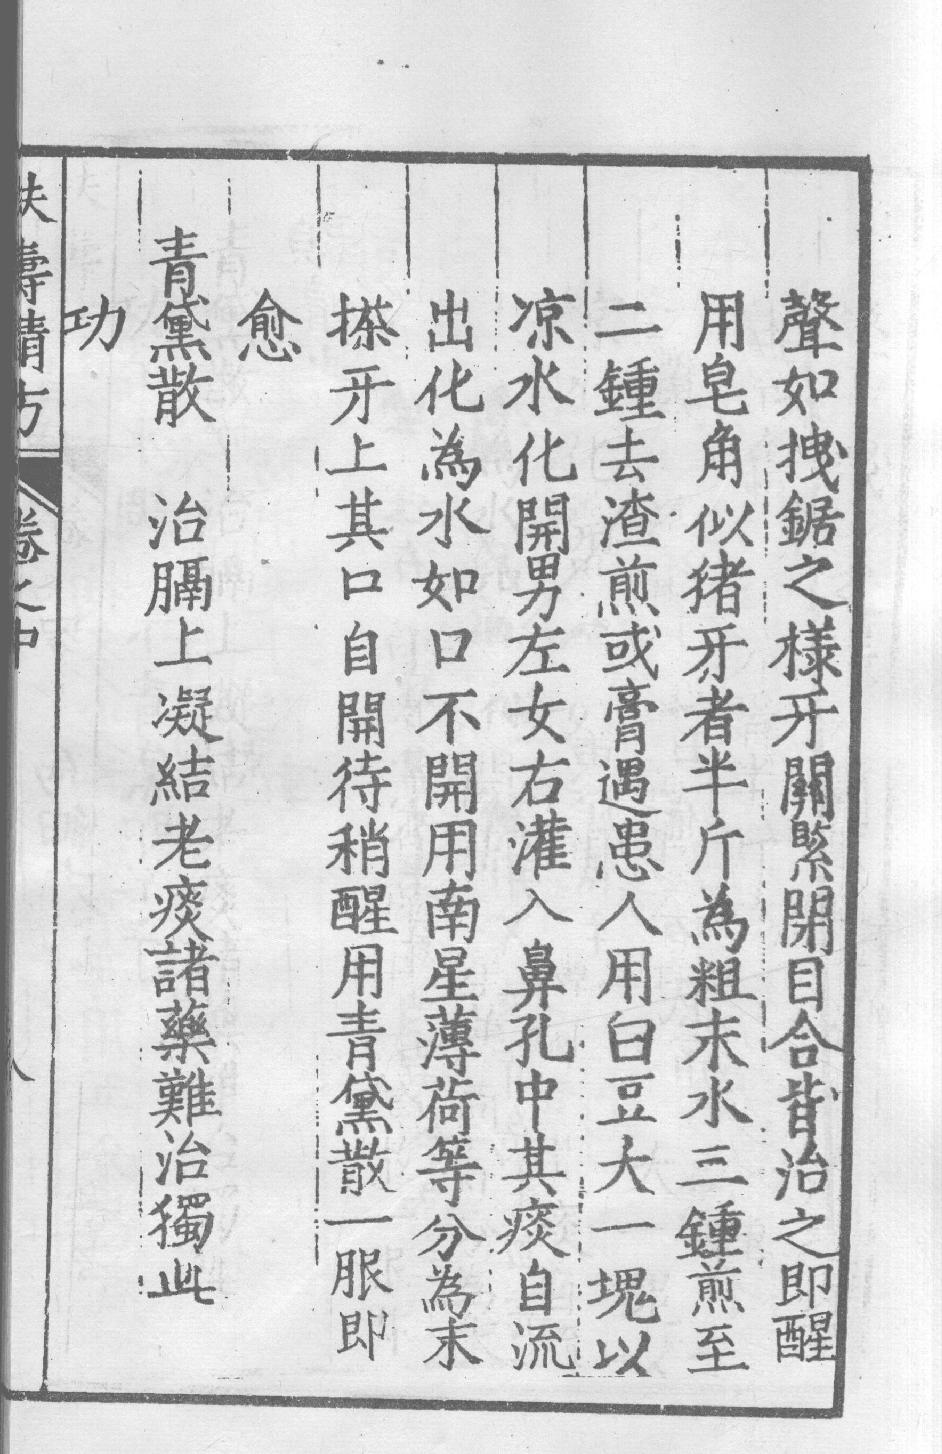 聲如拽鋸之樣牙關緊閉目合皆治之即醒
用皂角似猪牙者半斤為粗末水三鍾煎至
二鍾去渣煎或膏遇患人用白豆大一塊以
凉水化開男左女右灌入鼻孔中其痰自流
出化為水如口不開用南星薄荷等分為末
搽牙上其口自開待稍醒用青黛散一服即
愈
青黛散　治膈上凝結老痰諸藥難治獨此
功
扶壽精方　卷之中